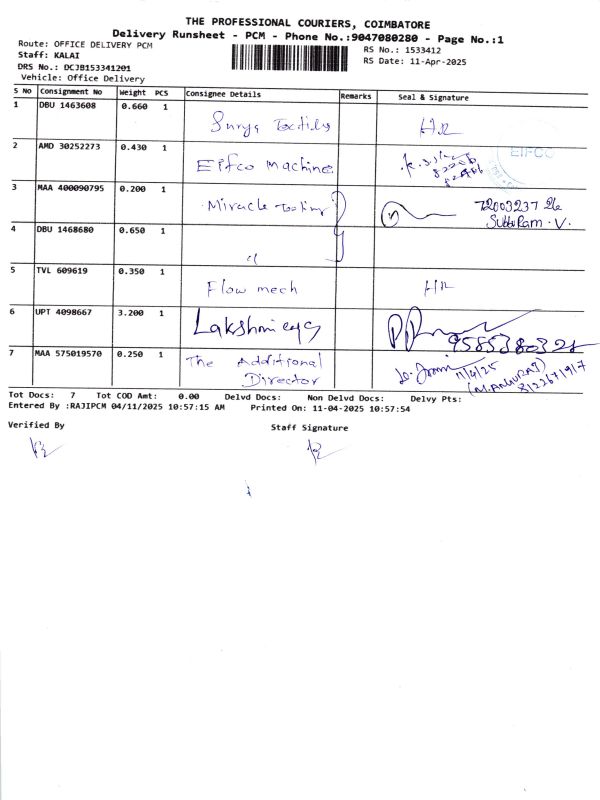 THE PROFESSIONAL COURIERS, COIMBATORE
Delivery Runsheet - PCM - Phone No.:9047080280 - Page No.:1
Route: OFFICE DELIVERY PCM
Staff: KALAI
DRS No.: DCJB153341201
Vehicle: Office Delivery
RS No.: 1533412
RS Date: 11-Apr-2025
S No Consignment No Weight PCS Consignee Details Remarks Seal & Signature
1 DBU 1463608 0.660 1 Surya HR
2 AMD 30252273 0.430 1 Eifco Machine EIFCO
3 MAA 400090795 0.200 1 Miracle Tooling SubbiRam. V.
4 DBU 1468680 0.650 1 "
5 TVL 609619 0.350 1 Flow mech HR
6 UPT 4098667 3.200 1 Lakshmi
7 MAA 575019570 0.250 1 The Additional Director 11/4/25
Tot Docs: 7 Tot COD Amt: 0.00 Delvd Docs: Non Delvd Docs: Delvy Pts:
Entered By :RAJIPCM 04/11/2025 10:57:15 AM Printed On: 11-04-2025 10:57:54
Verified By
Staff Signature